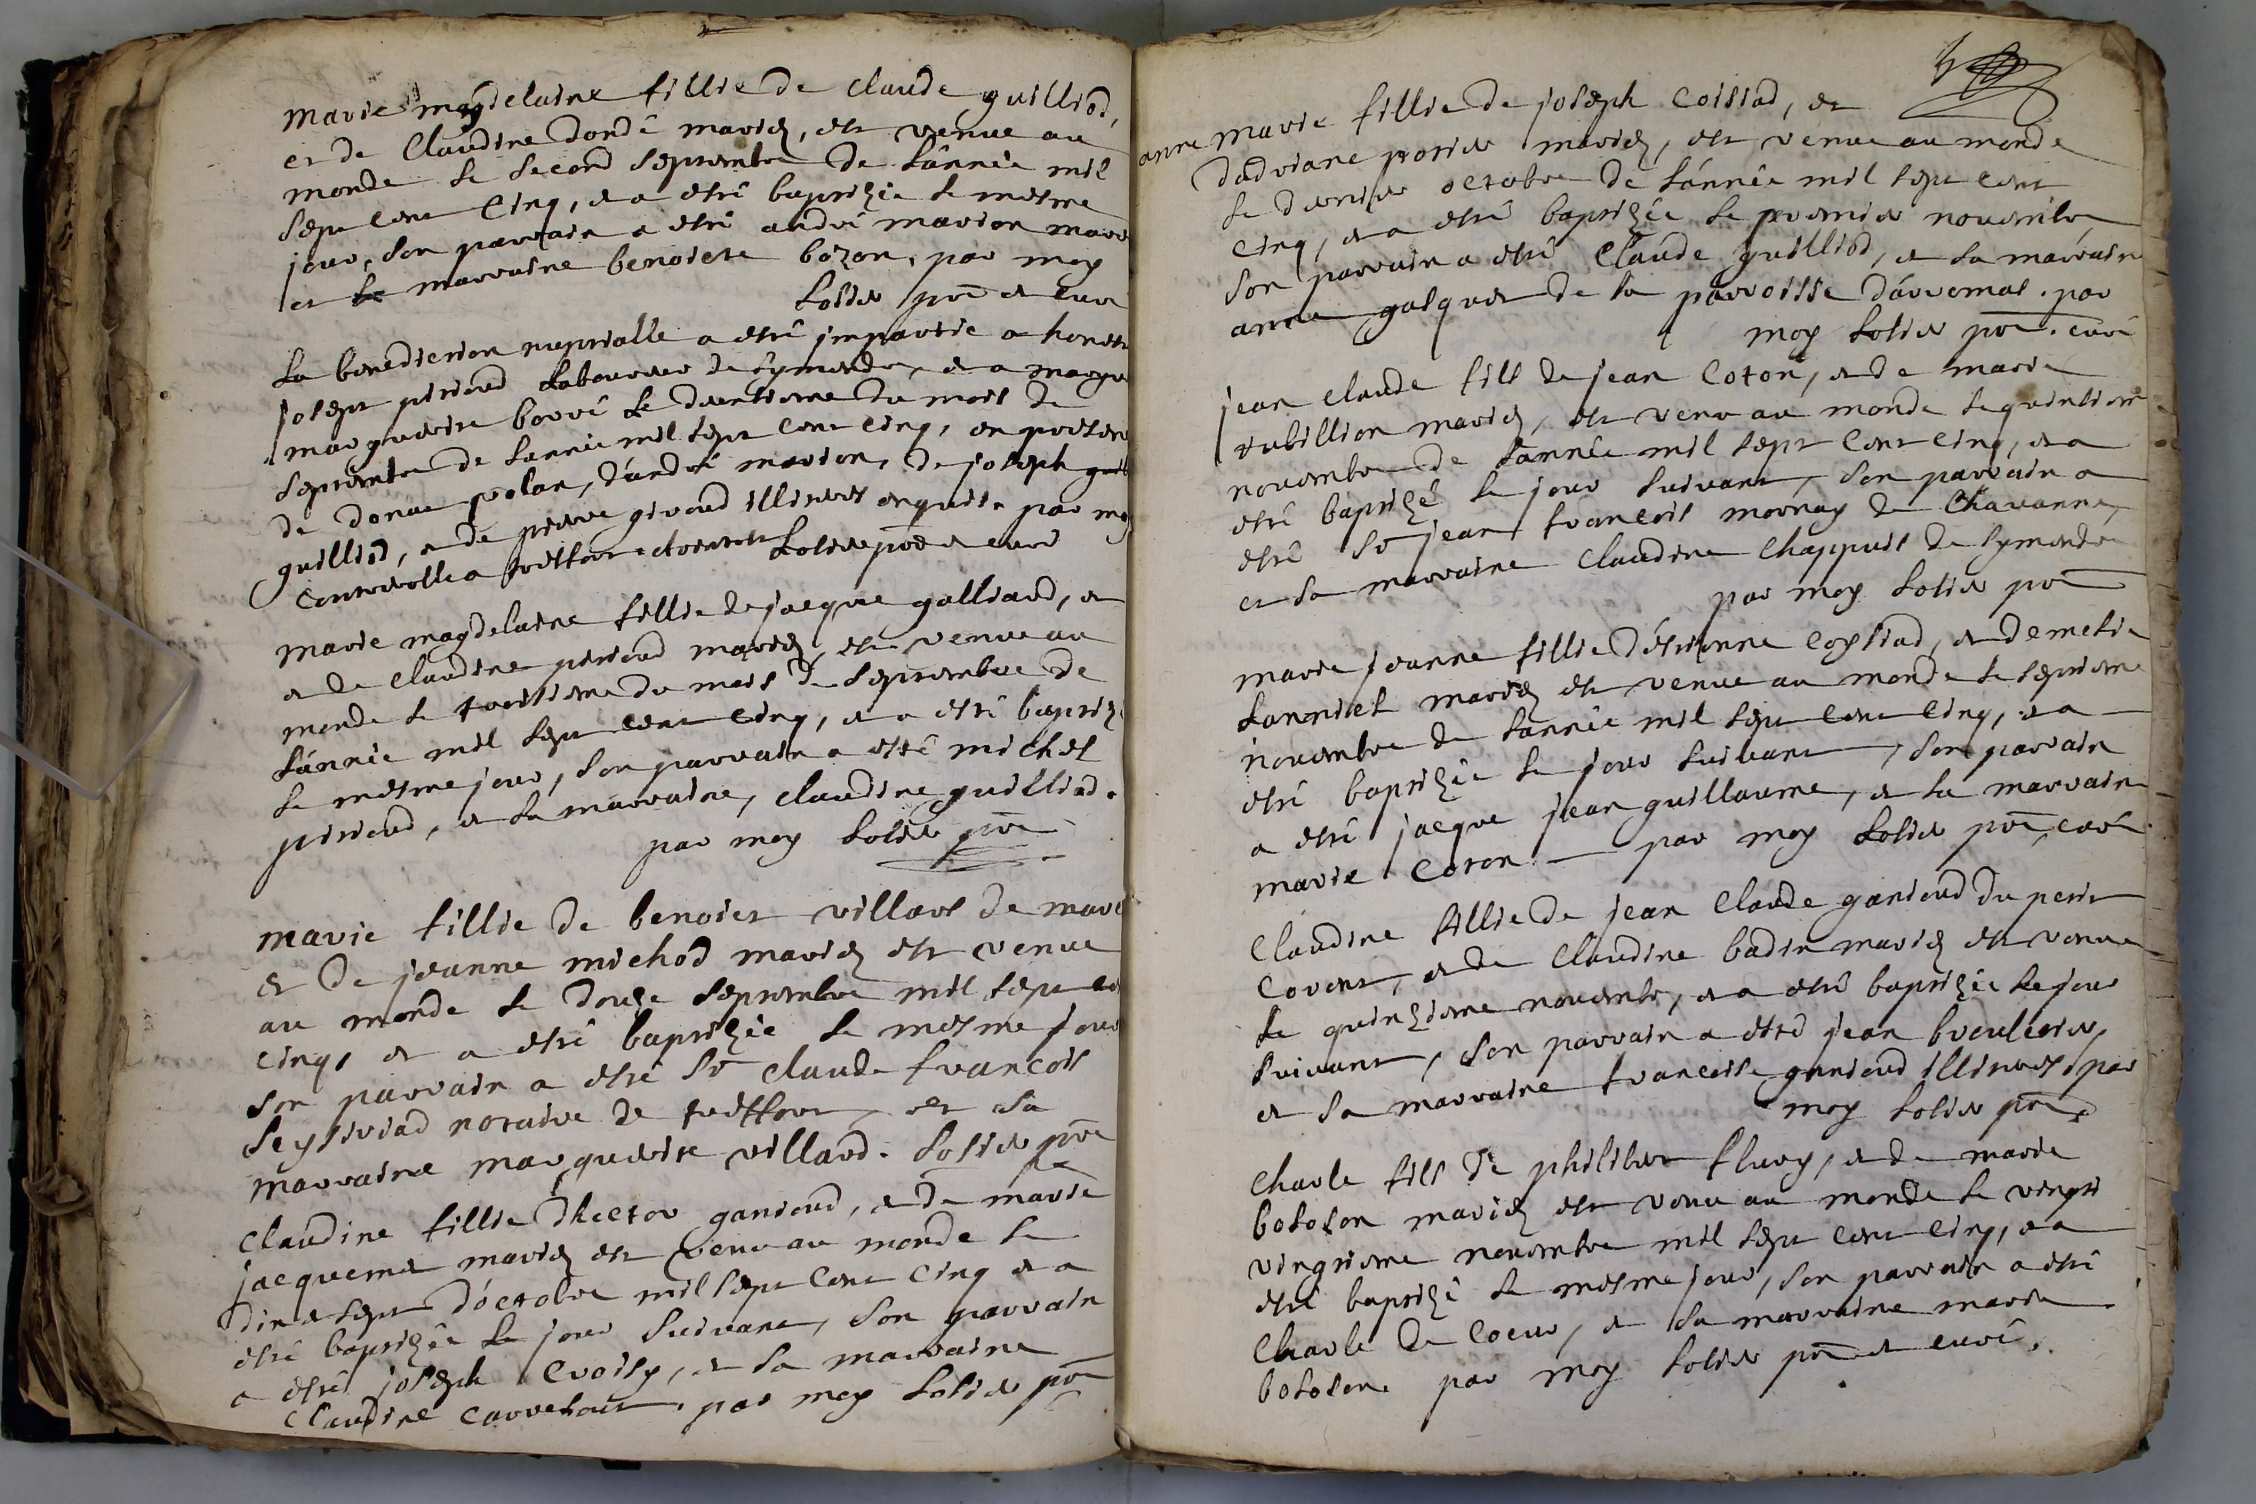 marie magdelaine fillie de claude guilliod,
et de Claudine dondé mariez, est venue au
monde le second septembre de l'année mil
sept cent cinq, et a esté baptizée le mesme
jour, son parrain a esté andré marion
et marraine benoiete bozon, par moy
Losier pre et curé
La benediction nuptialle a esté impartie a honeste
josept pirioud Laboureur de symandre, et a
marguerite borré le du mois de
septembre de l'année mil sept cent cinq, en presence
de donat polan, d'andré marion, de joseph
guilliod, et de pierre giroud illiteres enquis. par moy
controolle a treffort Losier pre et curé
marie magdelaine fillie de jacque galliand, et
et de claudine pirioud mariez, est venue au
monde le troisiesme du mois de septembre de
l'année mil sept cent cinq, et a esté baptizée
le mesme jour, son parrain a esté michel
pirioud, et la marraine, claudine guilliod.
par moy Losier pre
marie fillie de benoiet villars de
et de jeanne michod mariez est venue
au monde le douze septembre mil sept cent
cinq, et a esté baptizée le mesme jour
son parrain a esté Sr claude francois
seysiriad notaire de treffort, et sa
marraine marguerite villard. Losier pre
Claudine fillie d'hectorganioud, et de marie
jacquemet mariez est venu au monde le
dix et sept d'octobre mil sept cent cinq et a
esté baptizée le jour suivant, son parrain
a esté joseph Croisy, et sa marraine
Claudine par moy Losier pre
anne marie fillie de joseph Coisiad, et
d'adriane mariez, est venue au monde
le dernier octobre de l'année mil sept cent
cinq, et a esté baptizée le premier novembre,
son parrain a esté Claude guilliod, et sa marraine
anne gasquet de la parroisse d'arromas. par
moy Losier pre. curé
jean claude fils de jean Coton, et de marie
rubillion mariez, est venu au monde le
novembre de l'année mil sept cent cinq, et a
esté baptizé le jour suivant, son parrain a
esté Sr jean francois mornay de Chavanne,
et sa marraine Claudine Chappuis de symandre
par moy Losier pre
marie jeanne fillie d'étienne Coysiad, et
mariez est venue au monde le septiesme
novembre de l'année mil sept cent cinq, et a
esté baptizée le jour suivant, son parrain
a esté jacque jean guillaume, et la marraine
marie Coton. par moy Losier pre, curé
Claudine fillie de jean Claude ganioud du petit
Corent, et de Claudine badin mariez est venue
le quinziesme novembre, et a esté baptizée le jour
suivant, son parrain a esté jean
et sa marraine francoise ganioud illiteres, par
moy Losier pre
Charle fils de philibert flury, et de marie
boloson mariez est venu au monde le vingt
vingtiesme novembre mil sept cent cinq, et a
esté baptizé le mesme jour, son parrain a esté
Charle de Coeur, et sa marraine marie
boloson. par moy Losier pre et curé.